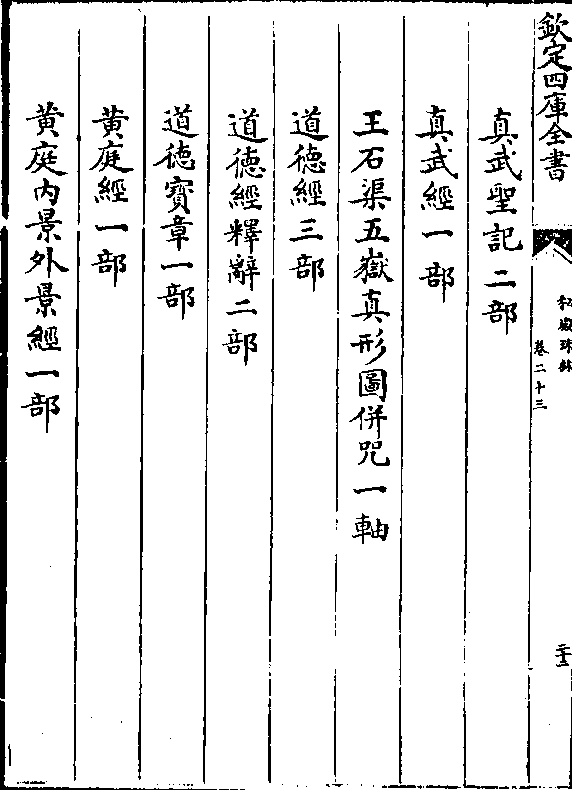 欽定四庫全書
秘殿珠林
卷二十三
真武聖記二部
真武經一部
王石渠五嶽真形圖併咒一軸
道德經三部
道德經釋辭二部
道德寶章一部
黃庭經一部
黃庭內景外景經一部